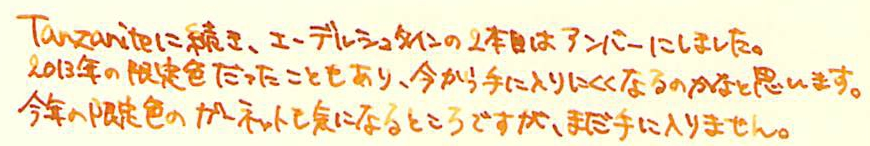 Tanzaniteに続き、エーデルシュタインの2本目はアンバーにしました。
2013年の限定色だったこともあり、今から手に入りにくくなるのかなと思います。
今年の限定色のガーネットも気になるところですが、まだ手に入りません。